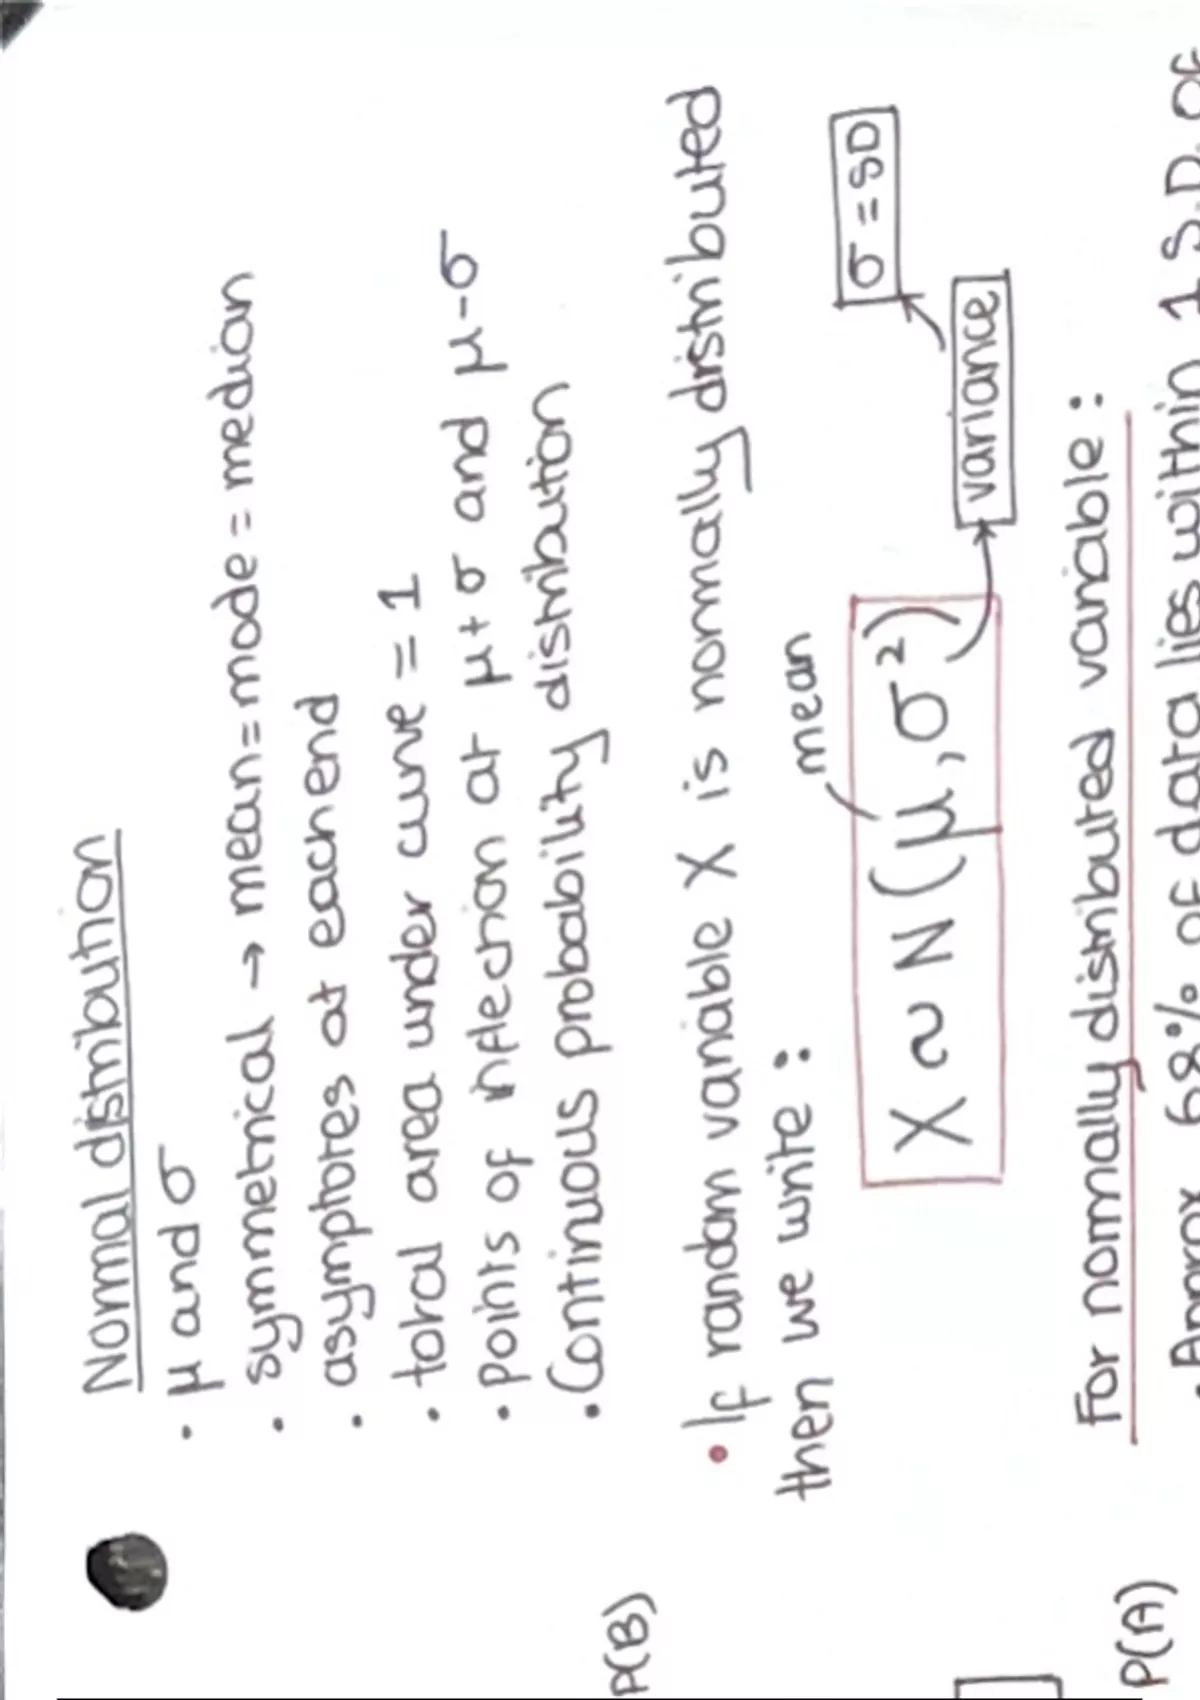 Normal distribution
• μ and σ
• symmetrical → mean=mode=median
• asymptotes at each end
• total area under curve = 1
• points of inflection at μ+σ and μ-σ
• Continuous probability distribution
• If random variable X is normally distributed
then we write :
mean
X ~ N (μ, σ²)
variance
σ = SD
For normally distributed variable :
• Approx 68% of data lies within 1 S.D. of
P(B)
P(A)